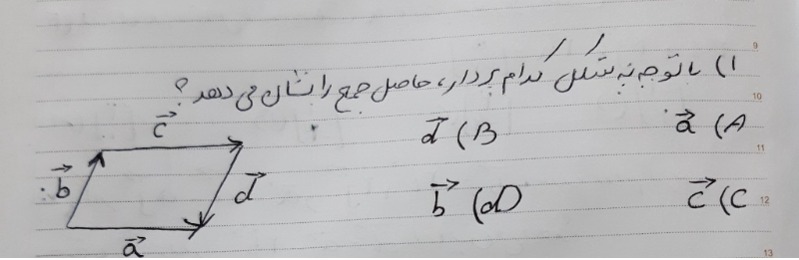 ۱) با توجه به شکل کدام بردار، حاصل جمع را نشان می دهد؟
A) a⃗
B) d⃗
C) c⃗
D) b⃗
c⃗
b⃗
d⃗
a⃗
9
10
11
12
13